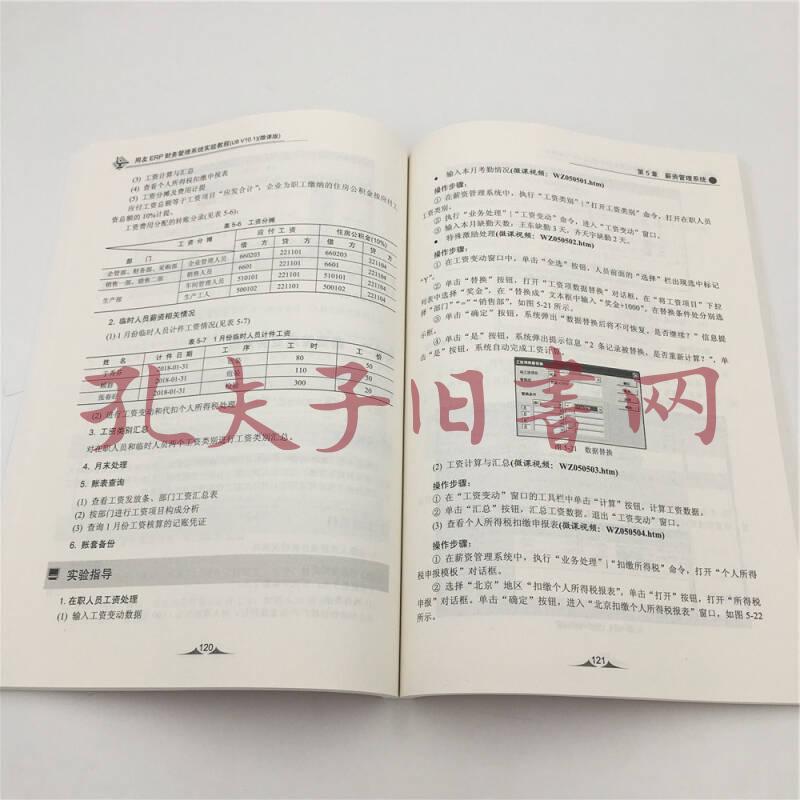 用友 ERP 财务管理系统实验教程(U8 V10.1)(微课版)
(3) 工资计算与汇总
(4) 查看个人所得税扣缴申报表
(5) 工资分摊及费用计提
应付工资总额等于工资项目“应发合计”，企业为职工缴纳的住房公积金按应付工
资总额的 10%计提。
工资费用分配的转账分录(见表 5-6)：
表 5-6 工资分摊
工资分摊 应付工资 住房公积金(10%)
部门 借方 贷方 借方 贷方
企管部、财务部、采购部 企业管理人员 660203 221101 660203 221104
销售一部、销售二部 销售人员 6601 221101 6601 221104
生产部 车间管理人员 510101 221101 510101 221104
生产工人 500102 221101 500102 221104
2. 临时人员薪资相关情况
(1) 1 月份临时人员计件工资情况(见表 5-7)
表 5-7 1 月份临时人员计件工资
姓名 计件日期 工序 工时 工价
2018-01-31 组装 80 50
2018-01-31 组装 110 30
2018-01-31 300 20
(2) 进行工资变动和代扣个人所得税处理
3. 工资类别汇总
对在职人员和临时人员两个工资类别进行工资类别汇总。
4. 月末处理
5. 账表查询
(1) 查看工资发放条、部门工资汇总表
(2) 按部门进行工资项目构成分析
(3) 查询 1 月份工资核算的记账凭证
6. 账套备份
实验指导
1. 在职人员工资处理
(1) 输入工资变动数据
120
第 5 章 薪资管理系统
● 输入本月考勤情况(微课视频：WZ050501.htm)
操作步骤：
① 在薪资管理系统中，执行“工资类别”|“打开工资类别”命令，打开在职人员
工资类别。
② 执行“业务处理”|“工资变动”命令，进入“工资变动”窗口。
③ 输入本月缺勤天数，王东缺勤 3 天，齐天宇缺勤 2 天。
● 特殊激励处理(微课视频：WZ050502.htm)
操作步骤：
① 在工资变动窗口中，单击“全选”按钮，人员前面的“选择”栏出现选中标记
“Y”。
② 单击“替换”按钮，打开“工资项数据替换”对话框，在“将工资项目”下拉
列表中选择“奖金”，在“替换成”文本框中输入“奖金+1000”，在替换条件处分别选
择“部门”“=”“销售部”，如图 5-21 所示。
③ 单击“确定”按钮，系统弹出“数据替换后将不可恢复，是否继续？”信息提
示框。
④ 单击“是”按钮，系统弹出提示信息“2 条记录被替换，是否重新计算？”，单
击“是”按钮，系统自动完成工资计算。
图 5-21 数据替换
(2) 工资计算与汇总(微课视频：WZ050503.htm)
操作步骤：
① 在“工资变动”窗口的工具栏中单击“计算”按钮，计算工资数据。
② 单击“汇总”按钮，汇总工资数据。退出“工资变动”窗口。
(3) 查看个人所得税扣缴申报表(微课视频：WZ050504.htm)
操作步骤：
① 在薪资管理系统中，执行“业务处理”|“扣缴所得税”命令，打开“个人所得
税申报模板”对话框。
② 选择“北京”地区“扣缴个人所得税报表”，单击“打开”按钮，打开“所得税
申报”对话框。单击“确定”按钮，进入“北京扣缴个人所得税报表”窗口，如图 5-22
所示。
121
孔夫子旧书网